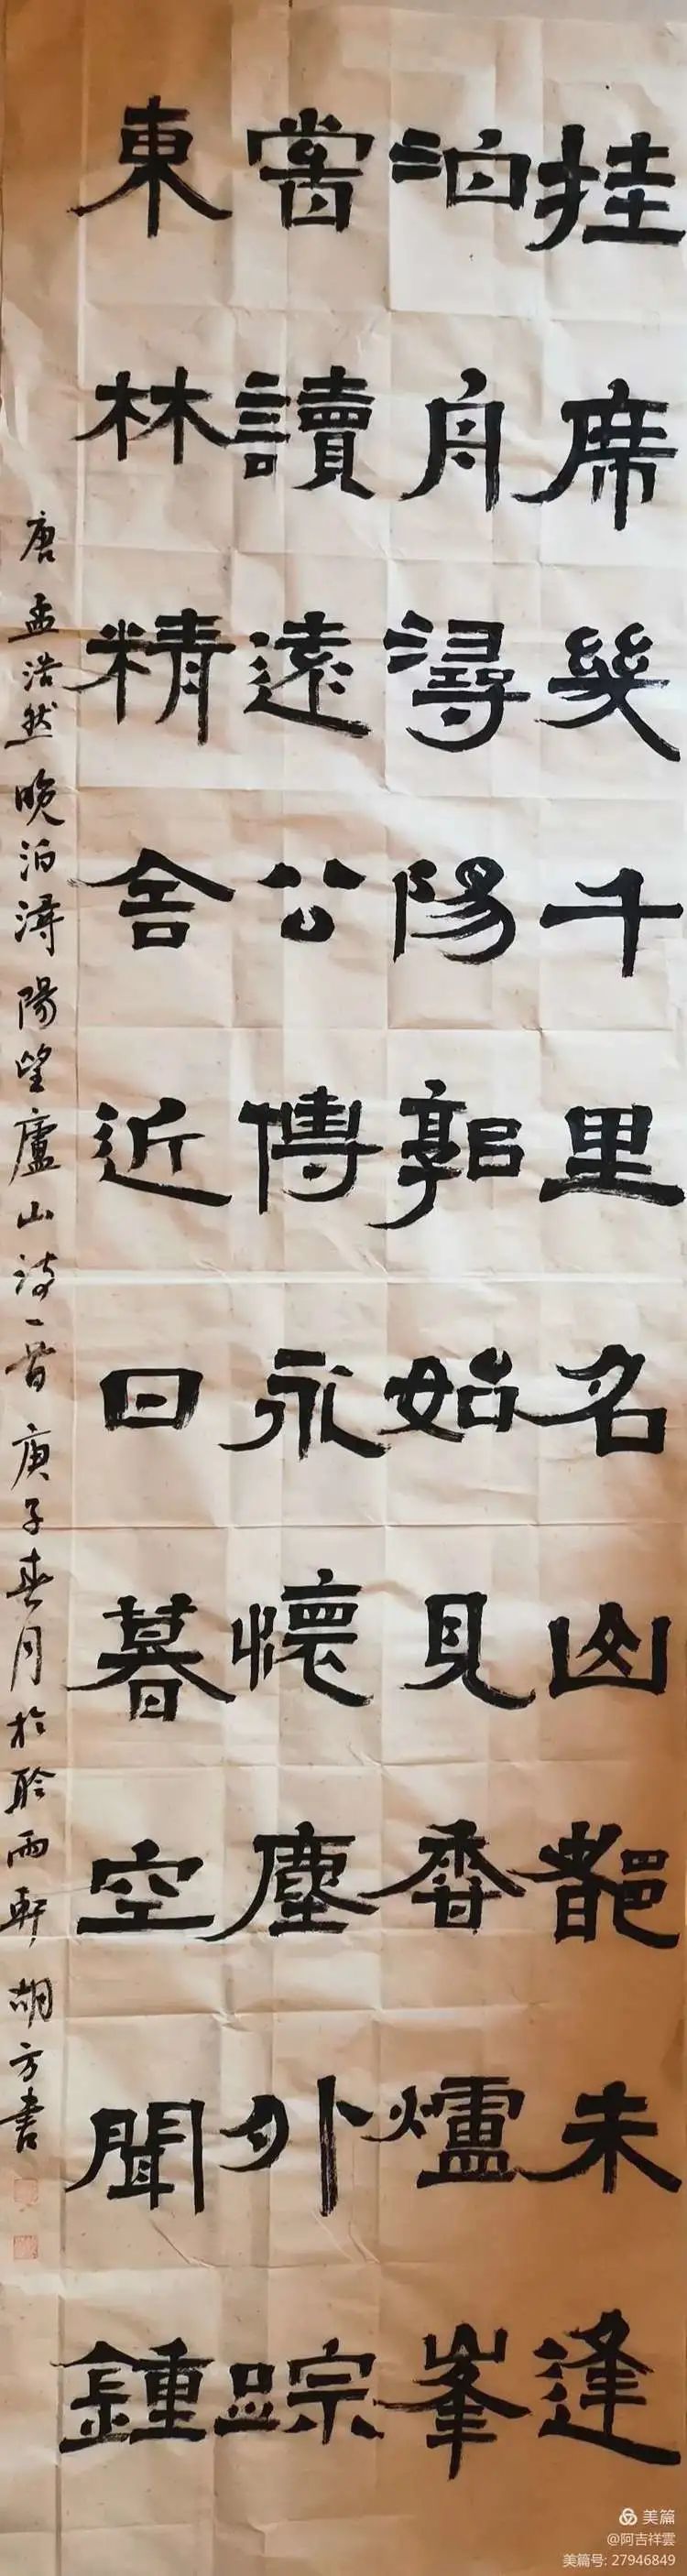 挂席幾千里名山都未逢
泊舟潯陽郭始見香爐峯
嘗讀遠公傳永懷塵外踪
東林精舍近日暮空聞鍾
唐孟浩然晚泊潯陽望廬山詩一首庚子春月於聆雨軒胡方書
美篇
@阿吉祥雲
美篇号: 27946849